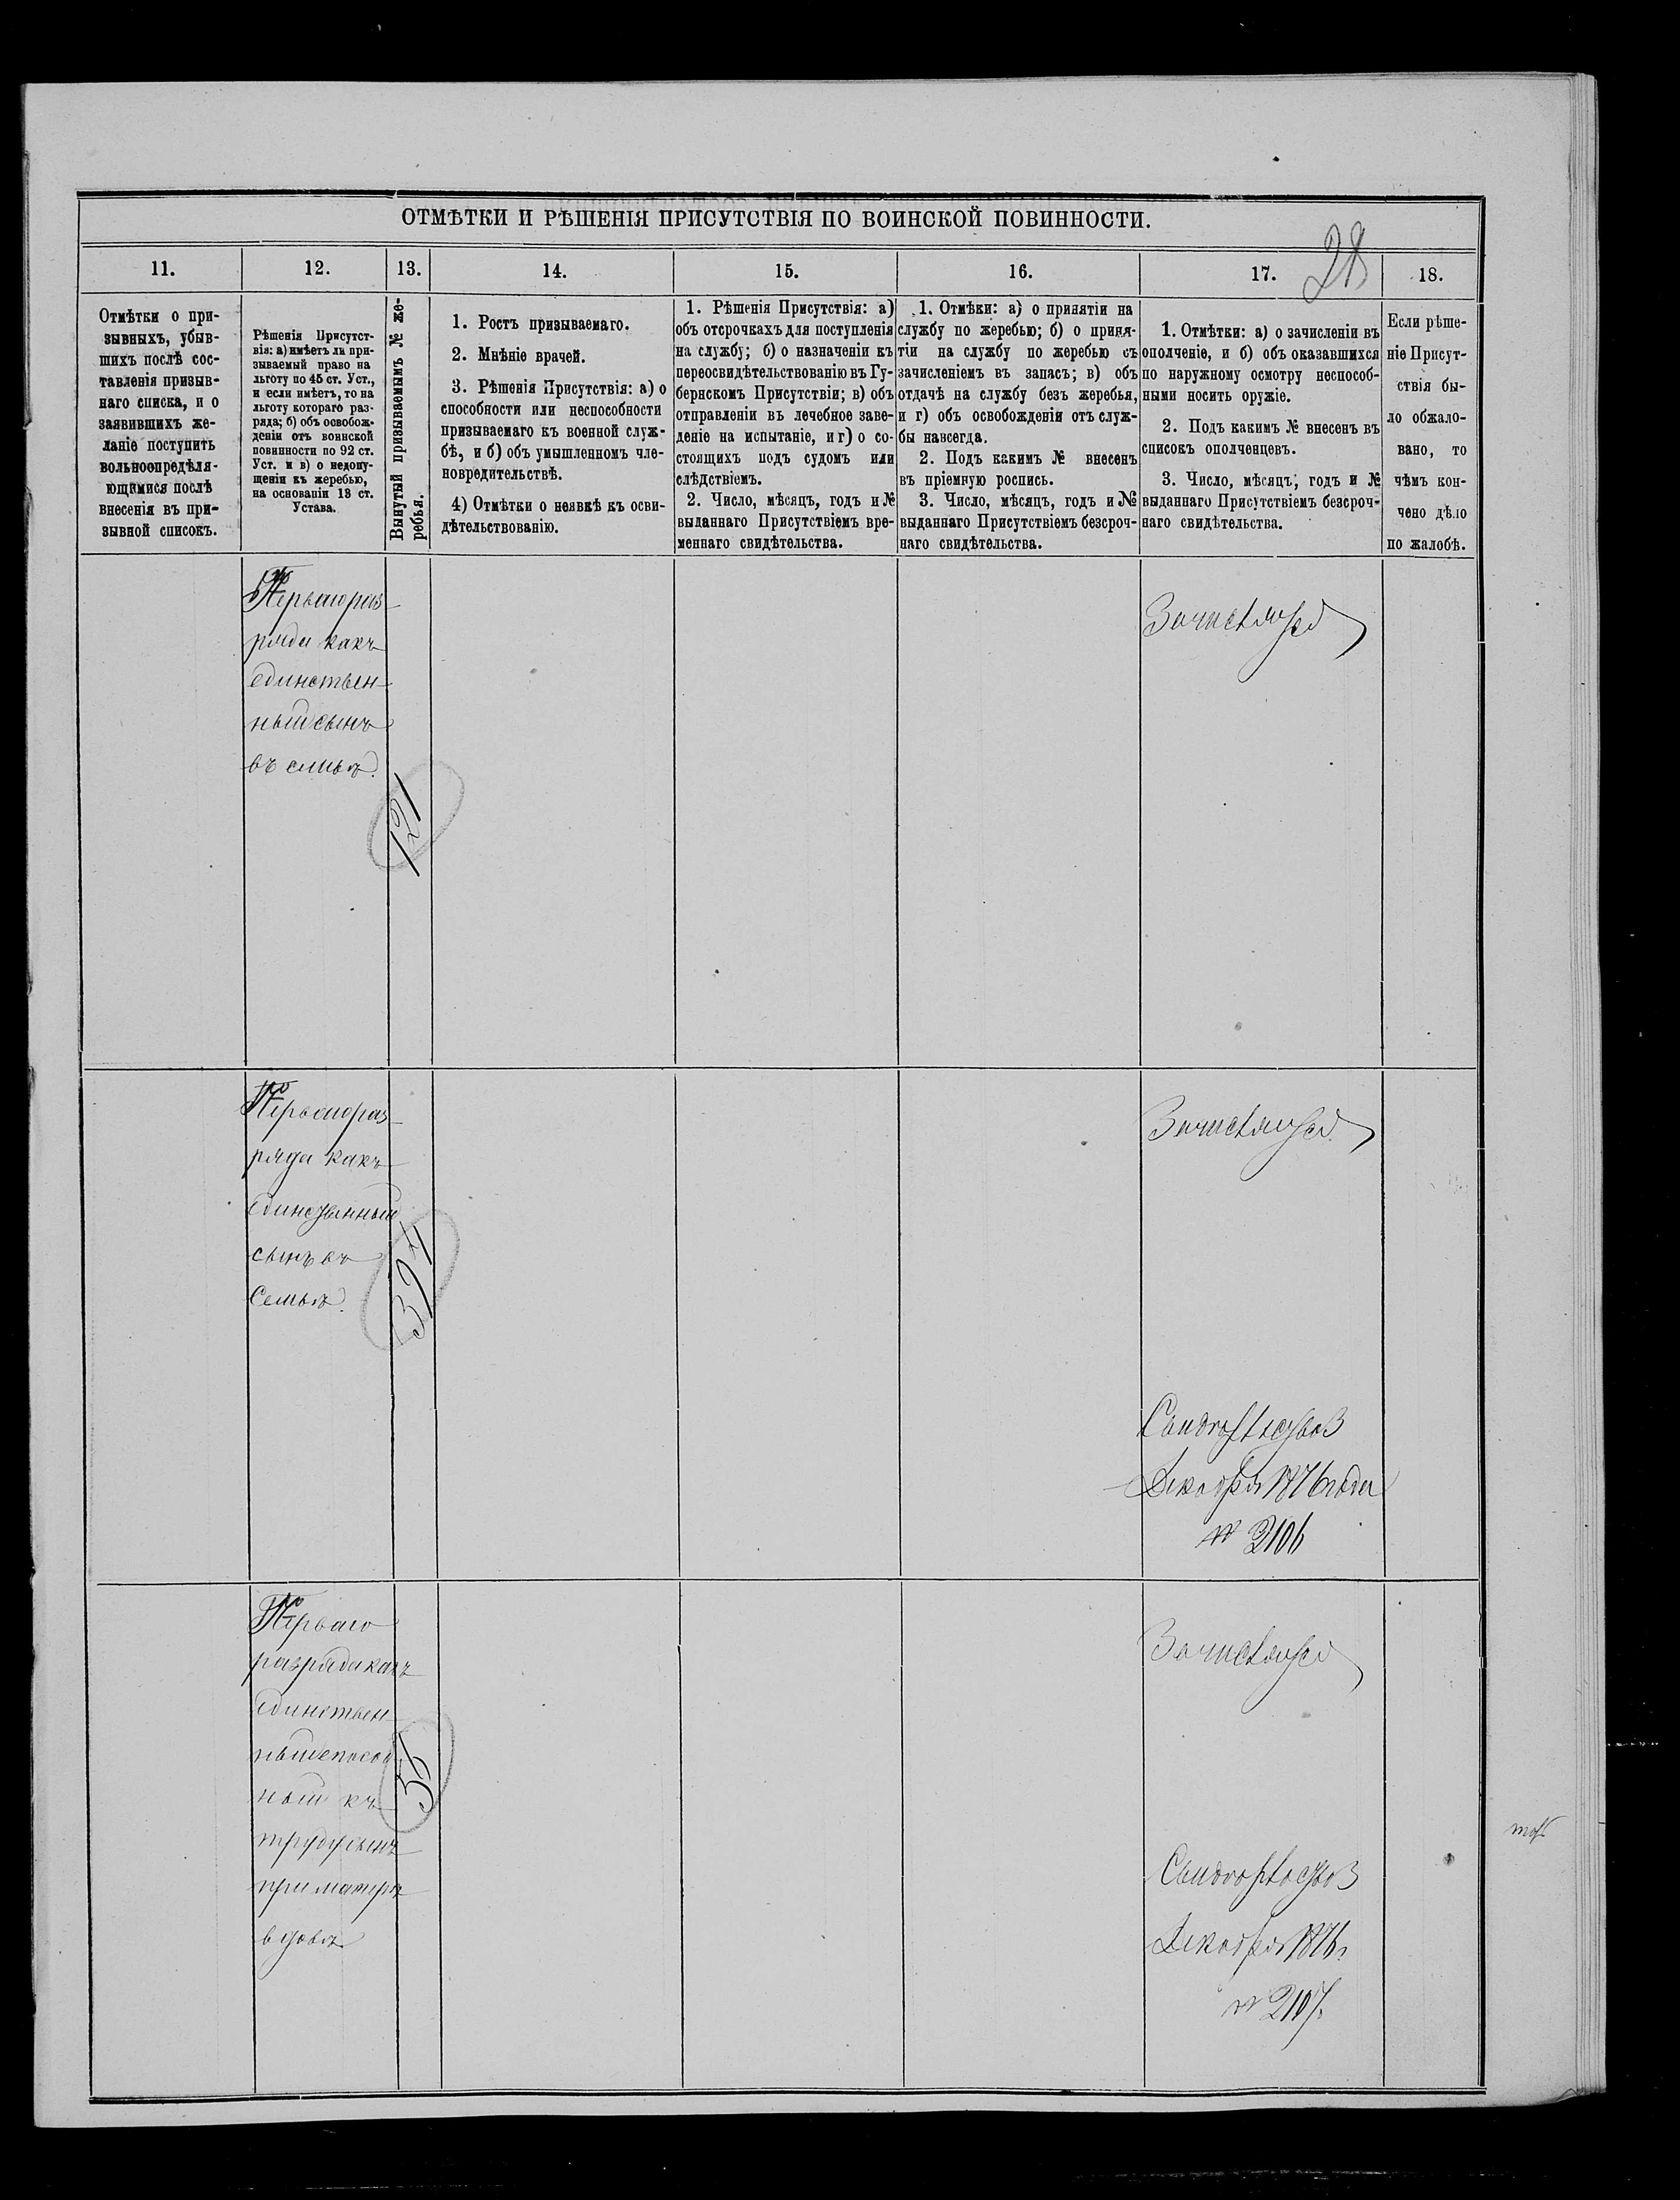 ОТМѢТКИ И РѢШЕНІЯ ПРИСУТСТВІЯ ПО ВОИНСКОЙ ПОВИННОСТИ.
28
11.
12.
13.
14.
15.
16.
17.
18.
Отмѣтки о при-
зывныхъ, убыв-
шихъ послѣ сос-
тавленія призыв-
наго списка, и о
заявившихъ же-
ланіе поступить
вольноопредѣля-
ющимися послѣ
внесенія въ при-
зывной списокъ.
Рѣшенія Присутст-
вія: а) имѣетъ ли при-
зываемый право на
льготу по 45 ст. Уст.,
и если имѣетъ, то на
льготу котораго раз-
ряда; б) объ освобож-
деніи отъ воинской
повинности по 92 ст.
Уст. и в) о недопу-
щеніи къ жеребью,
на основаніи 13 ст.
Устава.
Вынутый призываемымъ № же-
ребья.
1. Ростъ призываемаго.
2. Мнѣніе врачей.
3. Рѣшенія Присутствія: а) о
способности или неспособности
призываемаго къ военной служ-
бѣ, и б) объ умышленномъ чле-
новредительствѣ.
4) Отмѣтки о неявкѣ къ осви-
дѣтельствованію.
1. Рѣшенія Присутствія: а)
объ отсрочкахъ для поступленія
на службу; б) о назначеніи къ
переосвидѣтельствованію въ Гу-
бернскомъ Присутствіи; в) объ
отправленіи въ лечебное заве-
деніе на испытаніе, и г) о со-
стоящихъ подъ судомъ или
слѣдствіемъ.
2. Число, мѣсяцъ, годъ и №
выданнаго Присутствіемъ вре-
меннаго свидѣтельства.
1. Отмѣки: а) о принятіи на
службу по жеребью; б) о приня-
тіи на службу по жеребью съ
зачисленіемъ въ запасъ; в) объ
отдачѣ на службу безъ жеребья,
и г) объ освобожденіи отъ служ-
бы навсегда.
2. Подъ какимъ № внесенъ
въ пріемную роспись.
3. Число, мѣсяцъ, годъ и №
выданнаго Присутствіемъ безсроч-
наго свидѣтельства.
1. Отмѣтки: а) о зачисленіи въ
ополченіе, и б) объ оказавшихся
по наружному осмотру неспособ-
ными носить оружіе.
2. Подъ какимъ № внесенъ въ
списокъ ополченцевъ.
3. Число, мѣсяцъ; годъ и №
выданнаго Присутствіемъ безсроч-
наго свидѣтельства.
Если рѣше-
ніе Присут-
ствія бы-
ло обжало-
вано, то
чѣмъ кон-
чено дѣло
по жалобѣ.
Перваго раз
ряда какъ
единствен
ный сынъ
въ семьѣ.
121
Зачисляется
Перваго раз
ряда какъ
единственный
сынъ въ
семьѣ.
394
Зачисляется
Свидѣтельство 3
Декабря 1876 года
№ 2106
Перваго
разряда какъ
единствен
ный способ
ный къ
труду сынъ
при матери
вдовѣ
35
Зачисляется
Свидѣтельство 3
Декабря 1876 г.
№ 2107.